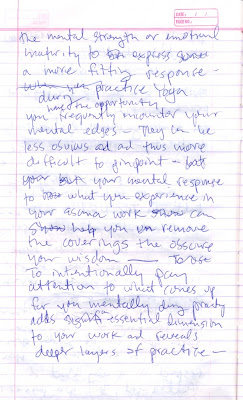 DATE: / /
the mental strength or emotional
maturity to express
a more fitting response –
when you practice yoga
during
need the opportunity
you frequently encounter your
mental edges – They can be
less obvious ad ad thus more
difficult to pinpoint – both
your but your mental response
to what you experience in
your asana work can
help you remove
the coverings the obscure
your wisdom — To use
To intentionally pay
attention to what comes up
for you mentally during practice
adds essential dimension
to your work and reveals
deeper layers of practice –